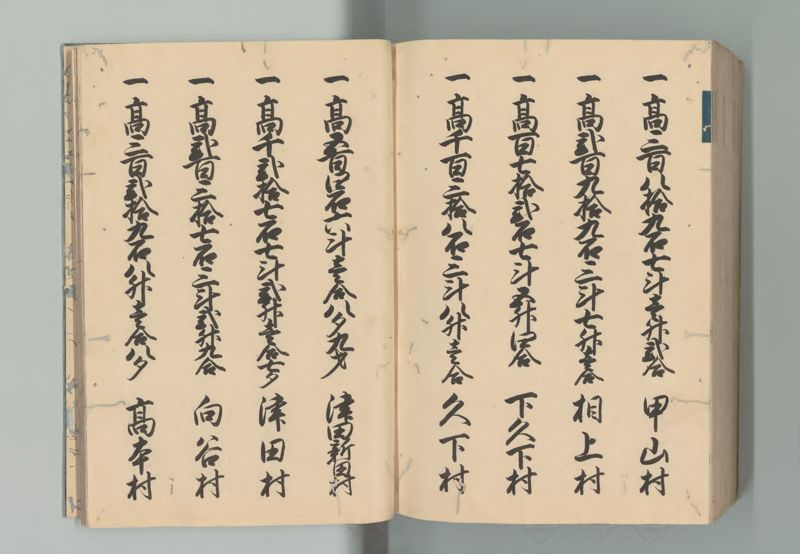 一 高三百八拾九石七斗壱升弐合 甲山村
一 高弐百九拾九石三斗七升壱合 相上村
一 高百七拾弐石七斗五升四合 下久下村
一 高千百三拾八石三斗八升壱合 久下村
一 高五百四石六斗壱合八夕九才 津田新田村
一 高千弐拾七石七斗弐升壱合七夕 津田村
一 高弐百三拾七石三斗弐升九合 向谷村
一 高三百弐拾九石八升壱合八夕 高本村